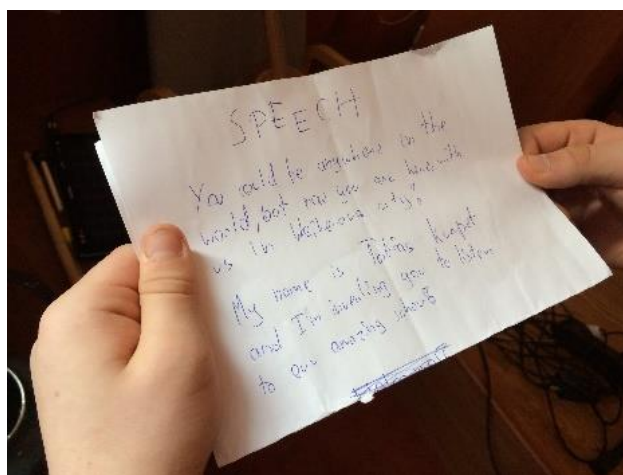 SPEECH
You could be anywhere in the
world, but now you are here, with
us in city!
My name is Tobias
and I'm inviting you to listen
to our amazing show!